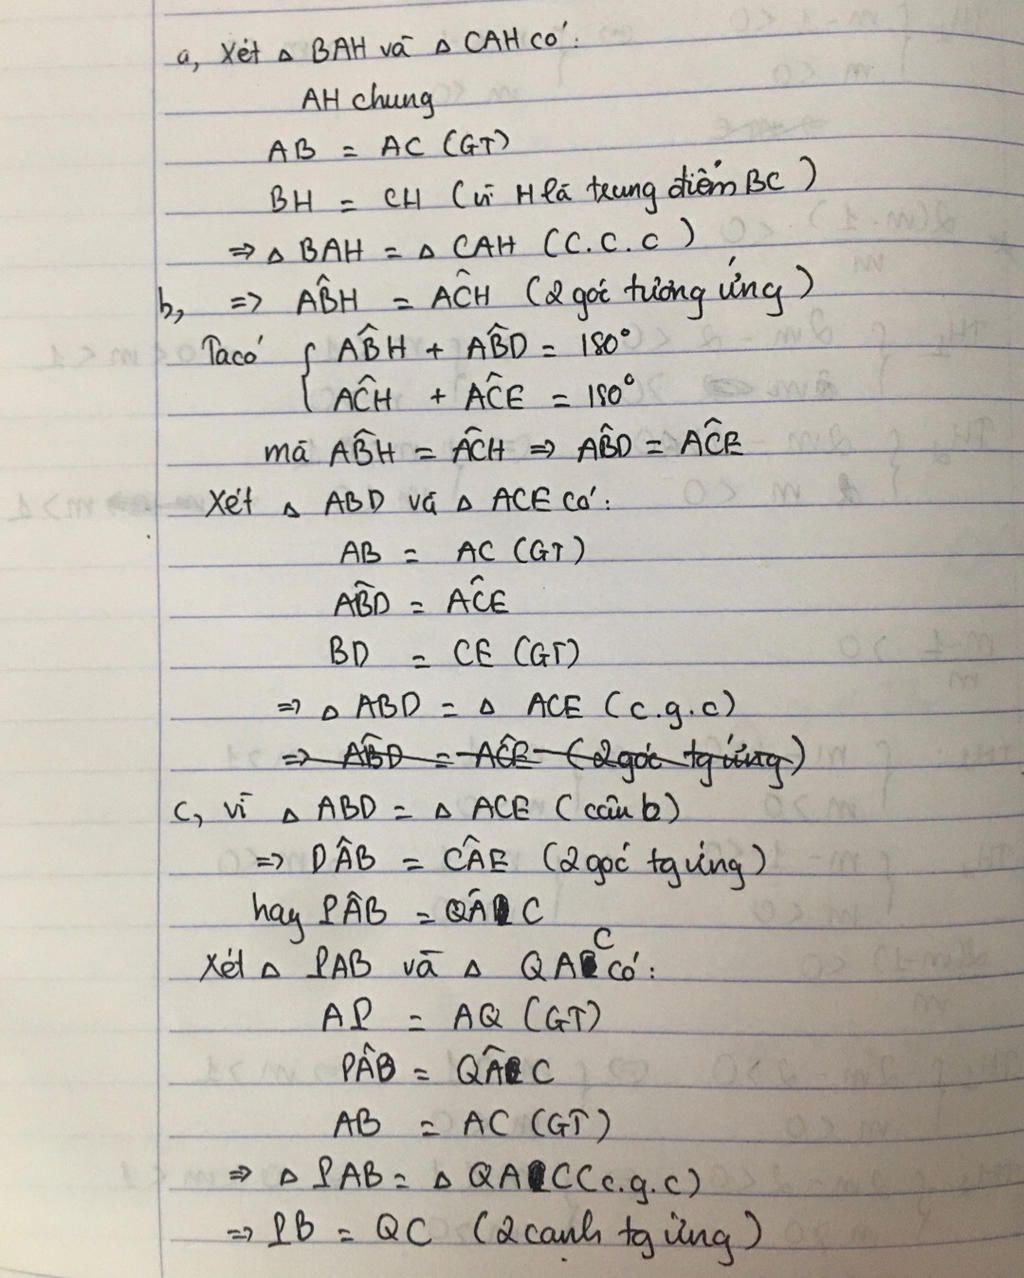 a, Xét △ BAH và △ CAH có:
AH chung
AB = AC (GT)
BH = CH (vì H là trung điểm BC)
=> △ BAH = △ CAH (c.c.c)
b, => AB̂H = AĈH (2 góc tương ứng)
Ta có { AB̂H + AB̂D = 180°
AĈH + AĈE = 180°
mà AB̂H = AĈH => AB̂D = AĈE
Xét △ ABD và △ ACE có:
AB = AC (GT)
AB̂D = AĈE
BD = CE (GT)
=> △ ABD = △ ACE (c.g.c)
=> AB̂D = AĈE (2 góc tg ứng)
c, vì △ ABD = △ ACE (câu b)
=> DÂB = CÂE (2 góc tg ứng)
hay PÂB = QÂC
Xét △ PAB và △ QAC có:
AP = AQ (GT)
PÂB = QÂC
AB = AC (GT)
=> △ PAB = △ QAC (c.g.c)
=> PB = QC (2 cạnh tg ứng)